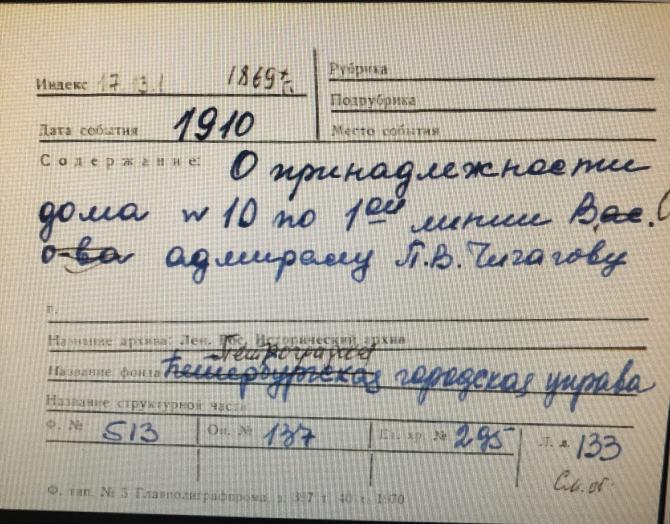 Индекс 17 13.1 1869 г.
Рубрика
Подрубрика
Дата события 1910
Место события
Содержание: О принадлежности
дома № 10 по 1ой линии Вас.
о-ва адмиралу П.В. Чичагову
г.
Название архива: Лен. Гос. Исторический архив
Петроградская
Название фонда Петербургская городская управа
Название структурной части
Ф. № 513 Оп. № 137 Ед. хр. № 295 Л. д. 133
См. об.
Ф. тип. № 3 Главполиграфпрома, з. 397 т. 40 т. 1970